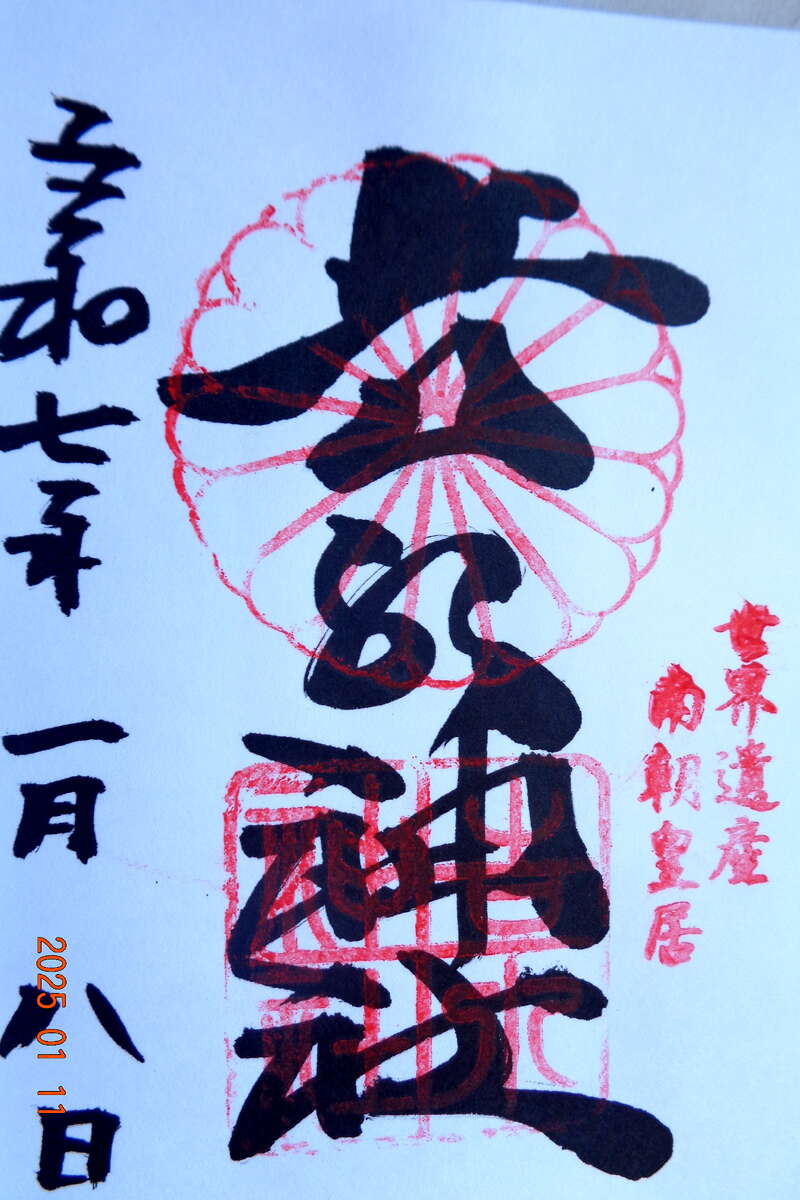 世界遺産
南朝皇居
吉水神社
令和七年 一月 八日
2025 01 11